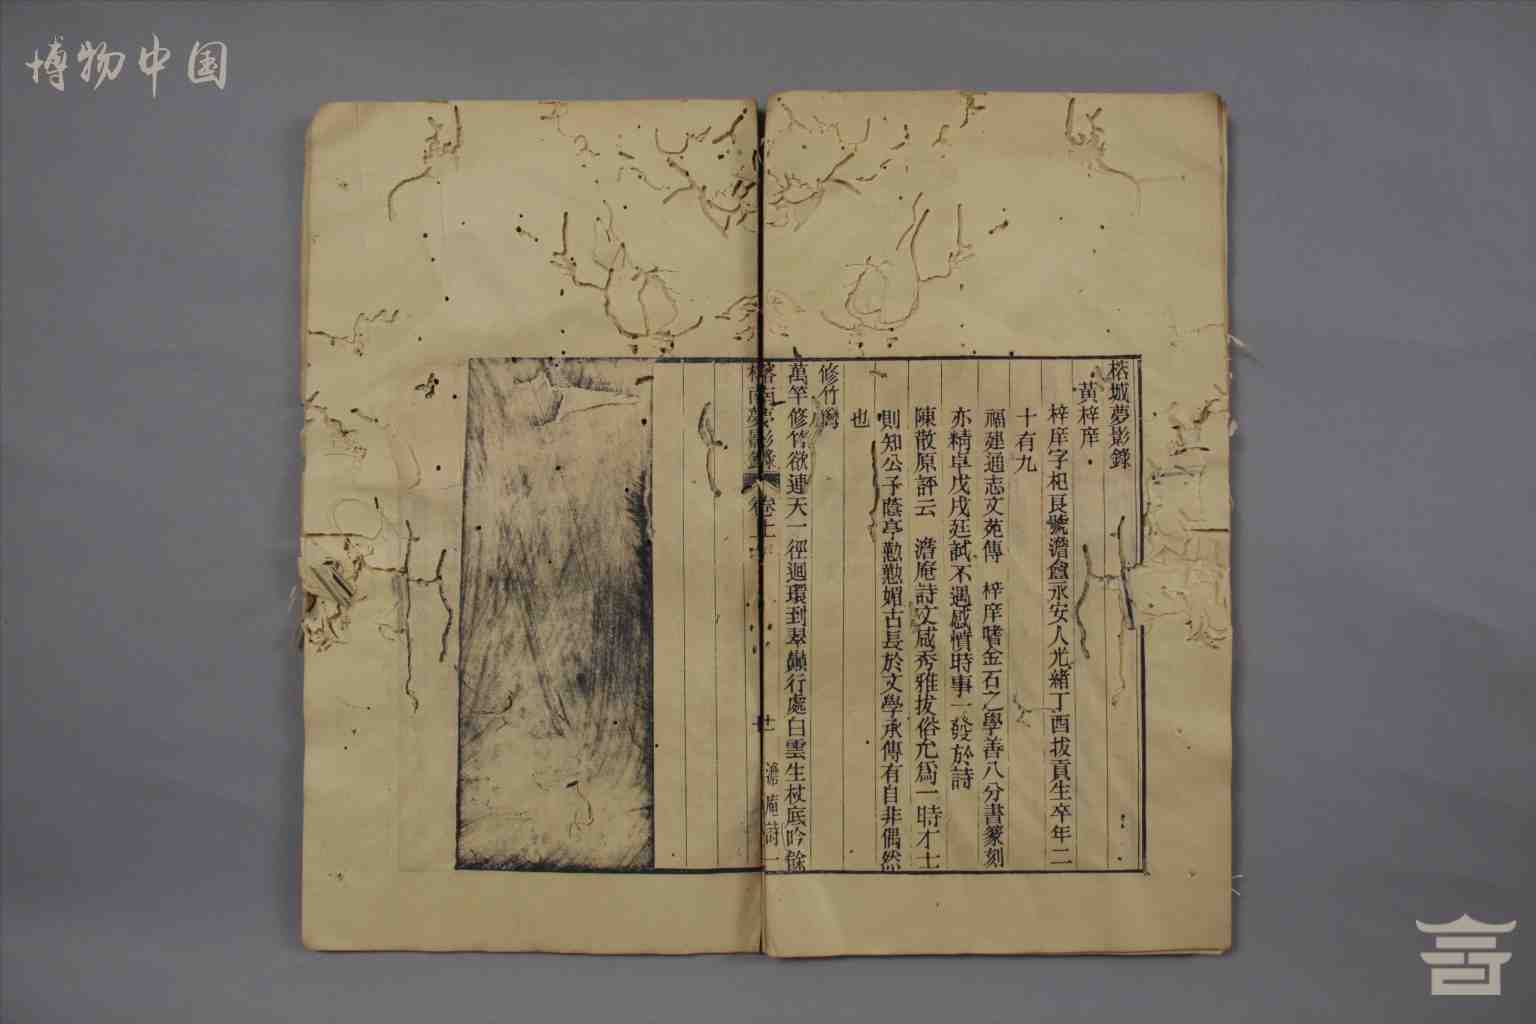 博物中国
榕城夢影錄
黃梓庠
梓庠字杞良號澹盦永安人光緒丁酉拔貢生卒年二
十有九
福建通志文苑傳 梓庠嗜金石之學善八分書篆刻
亦精卓戊戌廷試不遇感憤時事一發於詩
陳散原評云 澹庵詩文咸秀雅拔俗允爲一時才士
則知公子蔭亭懃懃媚古長於文學承傳有自非偶然
也
修竹灣
萬竿修篁欲連天一徑迴環到翠巔行處白雲生杖底吟餘
夢影錄 卷上 廿 澹庵詩一